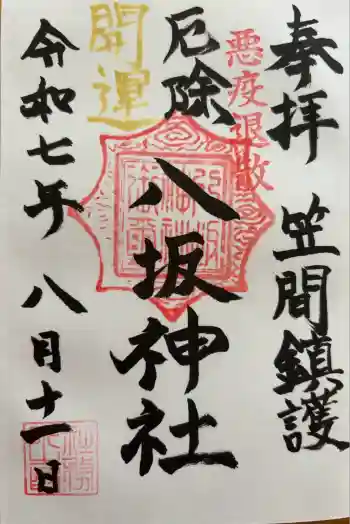 奉拝 笠間鎮護
悪疫退散
厄除 八坂神社
開運
令和七年 八月十一日